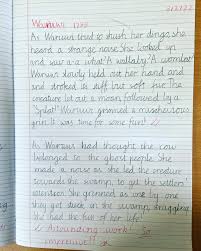 Waruwi
As Waruwi tried to shush her dingo, she
heard a strange noise. She looked up
and saw a what? A wallaby? A wombat?
Waruwi slowly held out her hand and
and stroked its stiff but soft fur. The
creature let out a moan, followed by a
"Splat!" Waruwi grinned a mischievous
grin. It was time for some fun!
As Waruwi had thought the cow
belonged to the ghost people. She
made a noise as she led the creature
towards the swamp, to get the settlers'
attention. She grinned as one by one
they got stuck in the swamp, struggling
She had the fun of her life!
Astounding work! So
impressive!!